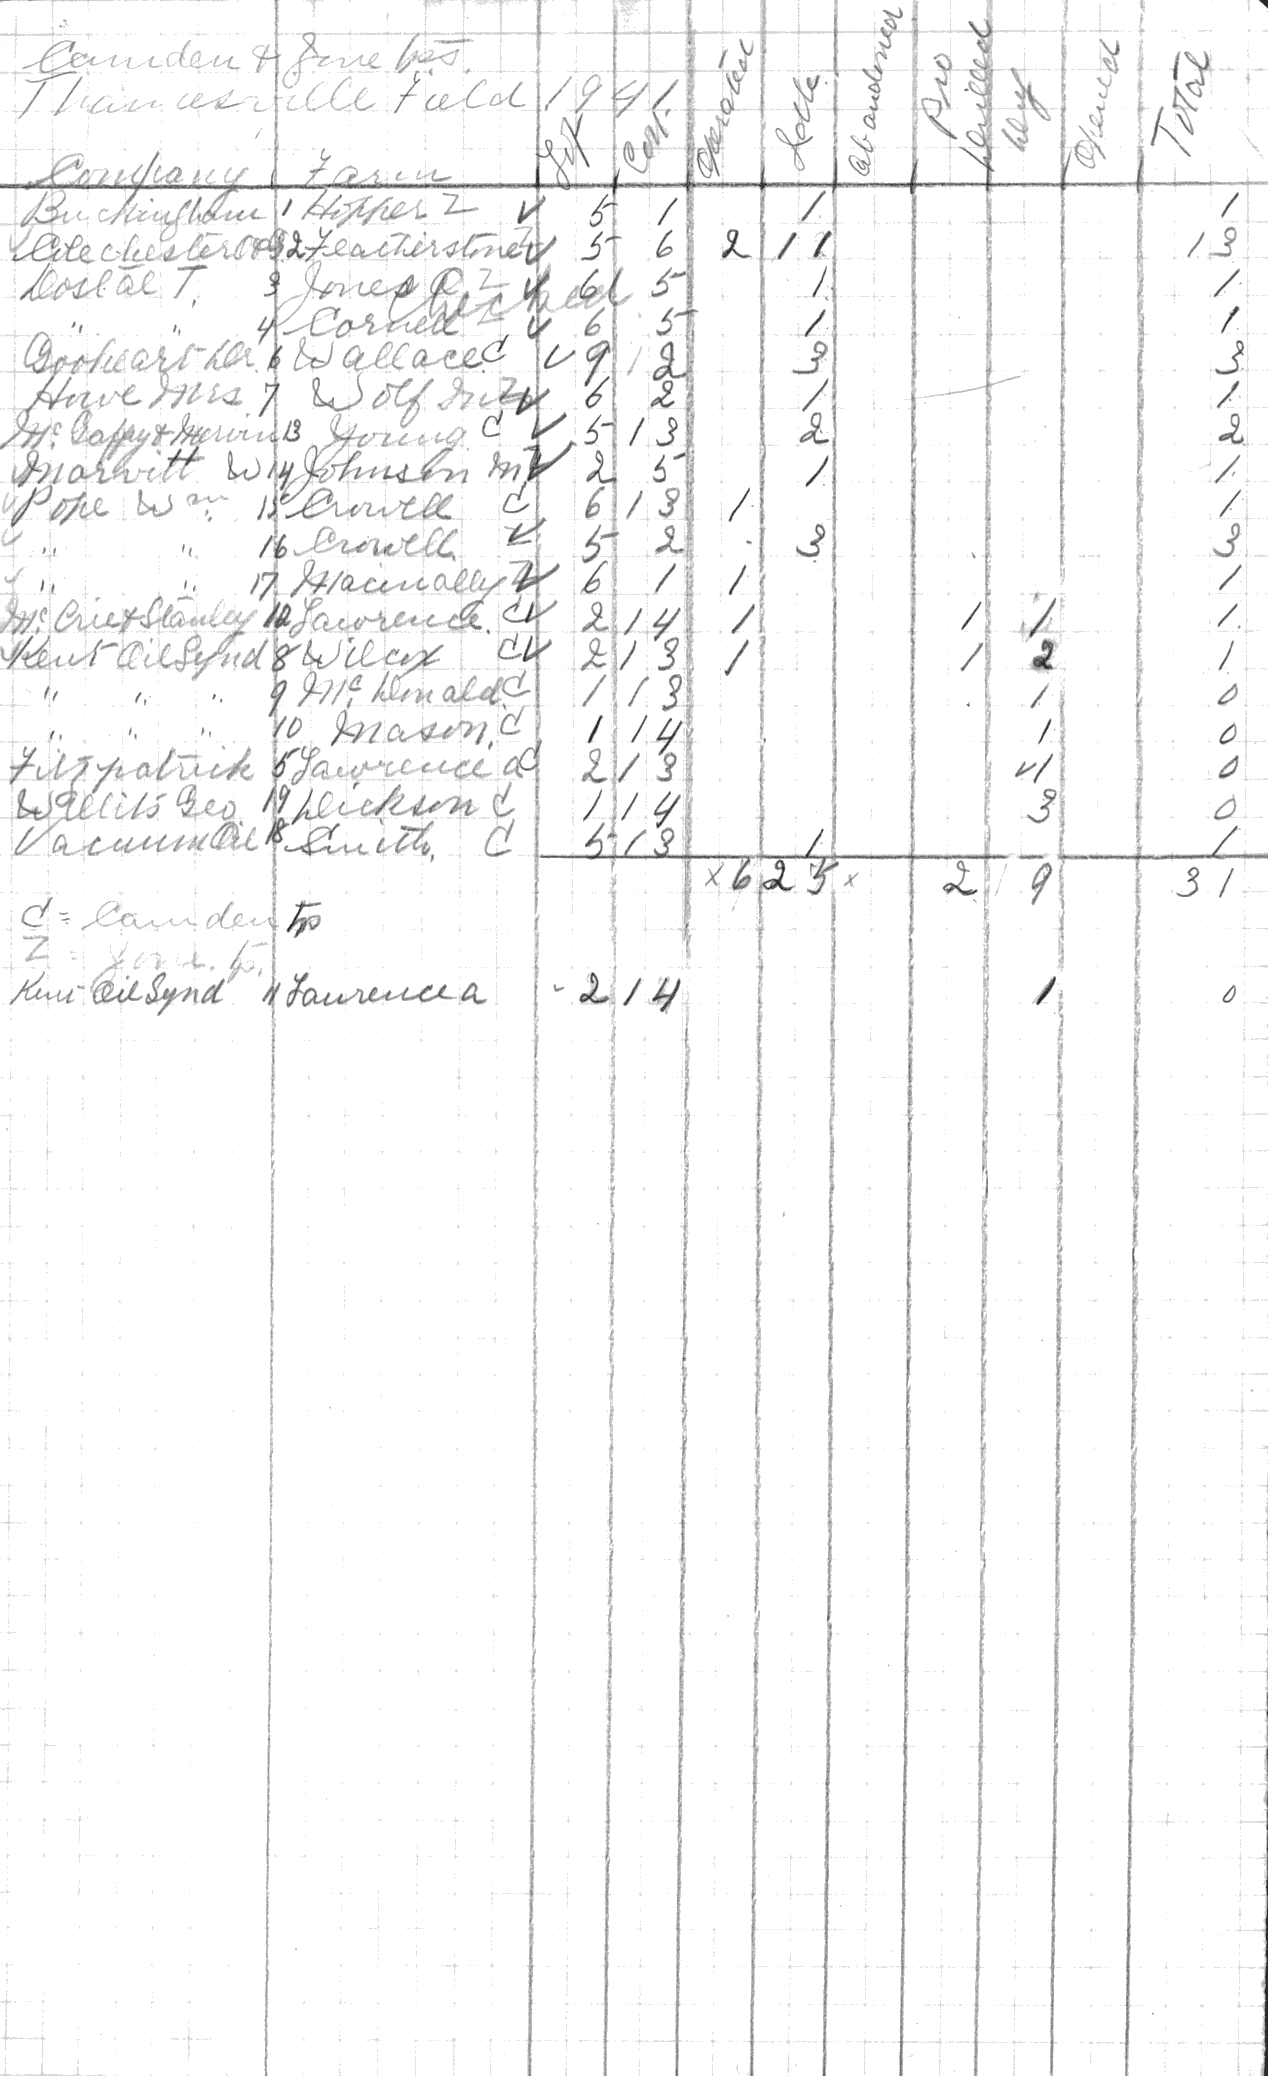 Camden & Zone tps.
Thamesville Field 1941
Company Farm Lot Con. Operated Idle Abandoned Pro Drilled Dry Opened Total
Buckingham 1 Hopper Z ✓ 5 1 1 1
2 Featherstone Z ✓ 5 6 2 11 13
Dostal T. 3 Jones Z ✓ 6 5 1 1
" " 4 Cornell Z ✓ 6 5 1 1
Dr. 6 Wallace C ✓ 9 12 3 3
Howe Mrs 7 Wolf Z ✓ 6 2 1 1
13 Young C ✓ 5 13 2 2
W 14 Johnson Z ✓ 2 5 1 1
Pope Wm. 15 Crowell C 6 13 1 1
" " 16 Crowell Z 5 2 3 3
" " 17 Macinally Z ✓ 6 1 1 1
Mc Crie & Stanley 12 Lawrence C ✓ 2 14 1 1 1 1
Kent Oil Synd 8 Wilcox C ✓ 2 13 1 1 2 1
" " " 9 Mc Donald C 1 13 1 0
" " " 10 Mason C 1 14 1 0
Fitzpatrick 5 Lawrence a C 2 13 ✓1 0
Willits Geo 19 Dickson C 1 14 3 0
Vacuum Oil 18 Smith C 5 13 1 1
x 6 25 x 2 9 31
C = Camden tp
Z = Zone tp.
Kent Oil Synd 11 Lawrence a - 2 14 1 0